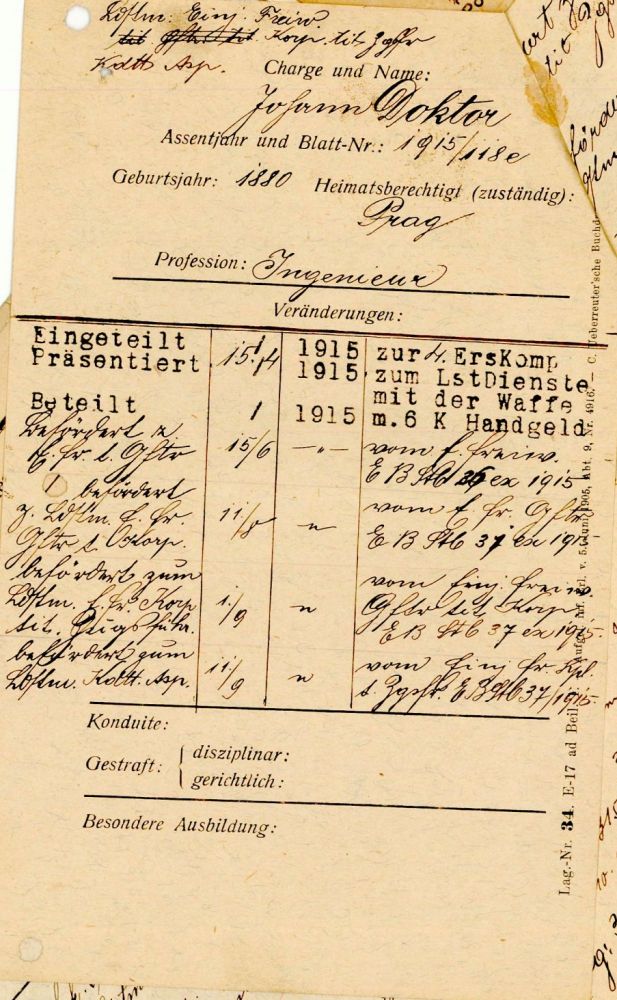 Ldstm. Einj. Freiw
tit Korp. tit Zgsfr
Kdtt Asp.
Charge und Name:
Johann Doktor
Assentjahr und Blatt-Nr.: 1915/118e
Geburtsjahr: 1880 Heimatsberechtigt (zuständig):
Prag
Profession: Ingenieur
Veränderungen:
Eingeteilt 1915 zur 4. ErsKomp
Präsentiert 15/4 1915 zum LstDienste
mit der Waffe
Beteilt 1915 m. 6 K Handgeld
befördert z.
E. fr. t. Gftr 15/6 -"- vom E. freiw.
E B Stb 36 ex 1915
befördert
z. Ldstm. E. fr. 11/8 " vom E. fr. Gftr
Gftr t. Korp. E B Stb 37 ex 1915
befördert zum
Ldstm. E. fr. Korp 1/9 " vom Einj. freiw.
tit. Zugsführ. Gftr tit. Korp.
E B Stb 37 ex 1915.
befördert zum
Ldstm. Kdtt. Asp. 11/9 " vom Einj. fr. Kpl.
t. Zgsfr. E B Stb 37/1915.
Konduite:
Gestraft: disziplinar:
gerichtlich:
Besondere Ausbildung:
Lag.-Nr. 34. E-17 ad Beil.